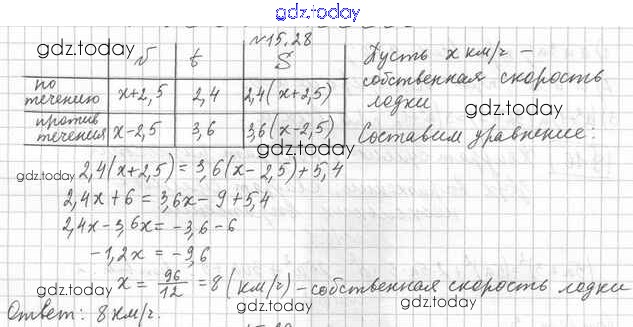 gdz.today
№15.28
gdz.today
v t S
по течению x+2,5 2,4 2,4(x+2,5)
против течения x-2,5 3,6 3,6(x-2,5)
gdz.today
Пусть x км/ч -
gdz.today
собственная скорость
лодки
Составим уравнение:
2,4(x+2,5) = 3,6(x-2,5)+5,4
gdz.today
gdz.today
2,4x+6 = 3,6x-9+5,4
2,4x-3,6x = -3,6-6
-1,2x = -9,6
x = 96/12 = 8 (км/ч) - собственная скорость лодки
gdz.today gdz.today gdz.today
Ответ: 8 км/ч.